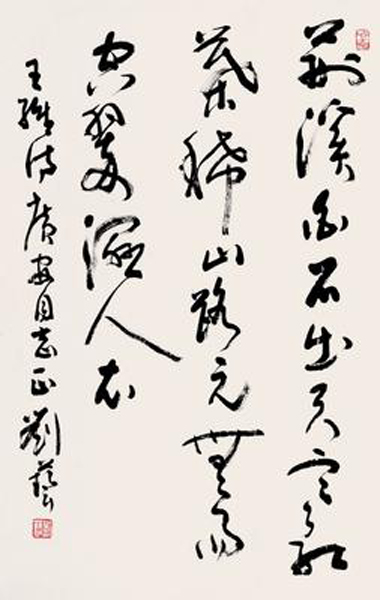 荆溪白石出天寒紅
葉稀山路元無雨
空翠濕人衣
王維诗 安同志正 劉藝